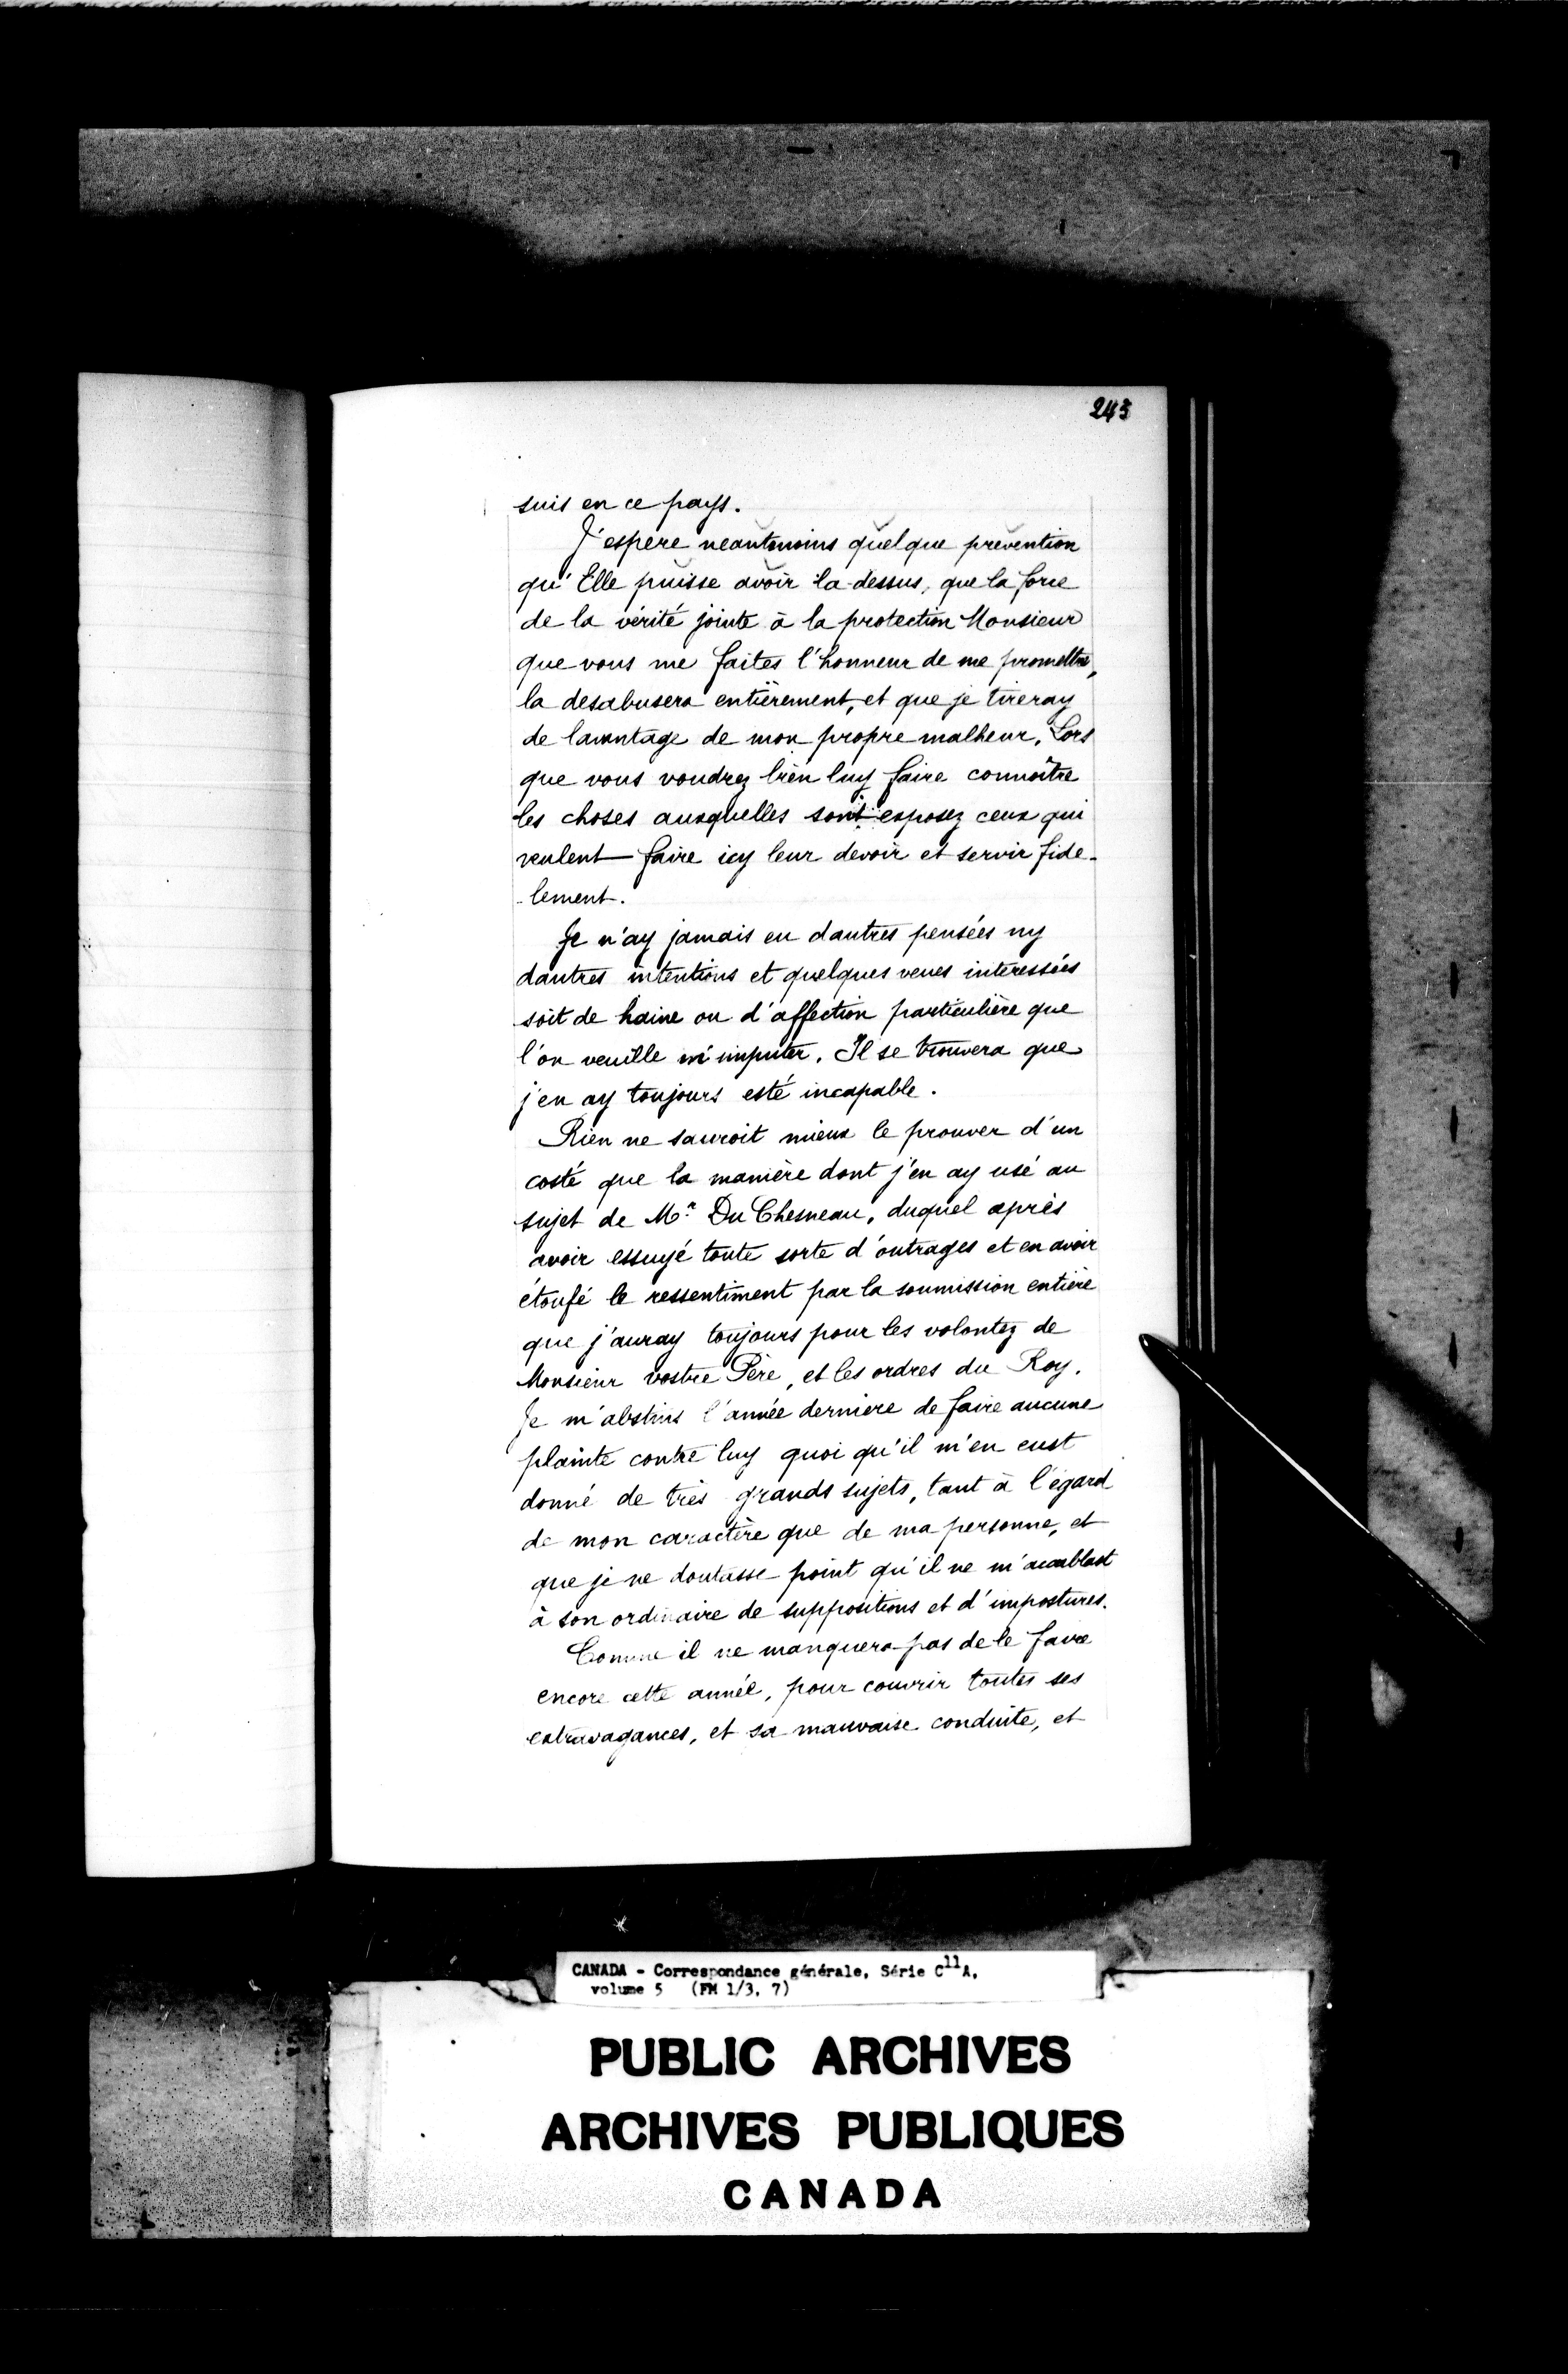 243
suis en ce pays.
J'espere neantmoins quelque prevention
qu'Elle puisse avoir la-dessus, que la force
de la vérité jointe à la protection Monsieur
que vous me faites l'honneur de me promettre,
la desabusera entièrement, et que je tireray
de lavantage de mon propre malheur, Lors
que vous voudrez bien luy faire connoître
les choses ausquelles sont exposez ceux qui
veulent faire icy leur devoir et servir fide-
-lement.
Je n'ay jamais eu dautres pensées ny
dautres intentions et quelques veues interessées
soit de haine ou d'affection particulière que
l'on veuille m'imputer. Il se trouvera que
j'en ay toujours esté incapable.
Rien ne sauroit mieux le prouver d'un
costé que la manière dont j'en ay usé au
sujet de Mr. Du Chesneau, duquel après
avoir essuyé toute sorte d'outrages et en avoir
étoufé le ressentiment par la soumission entière
que j'auray toujours pour les volontez de
Monsieur vostre Père, et les ordres du Roy.
Je m'abstins l'année derniere de faire aucune
plainte contre luy quoi qu'il m'en eust
donné de très grands sujets, tant à l'égard
de mon caractère que de ma personne, et
que je ne doutasse point qu'il ne m'accablast
à son ordinaire de suppositions et d'impostures.
Comme il ne manquera pas de le faire
encore cette année, pour couvrir toutes ses
extravagances, et sa mauvaise conduite, et
CANADA - Correspondance générale, Série C11A,
volume 5 (FM 1/3, 7)
PUBLIC ARCHIVES
ARCHIVES PUBLIQUES
CANADA